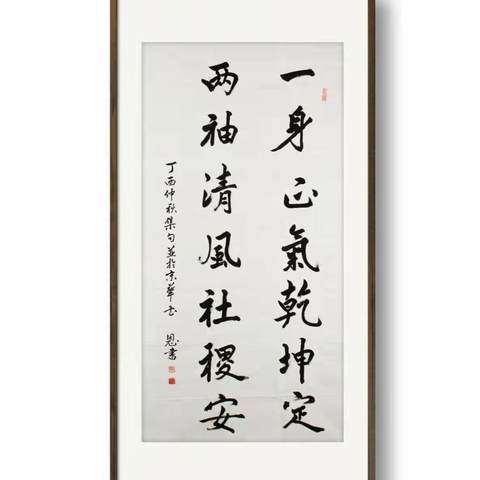 一身正氣乾坤定
两袖清風社稷安
丁酉仲秋集句並於京華
恩書